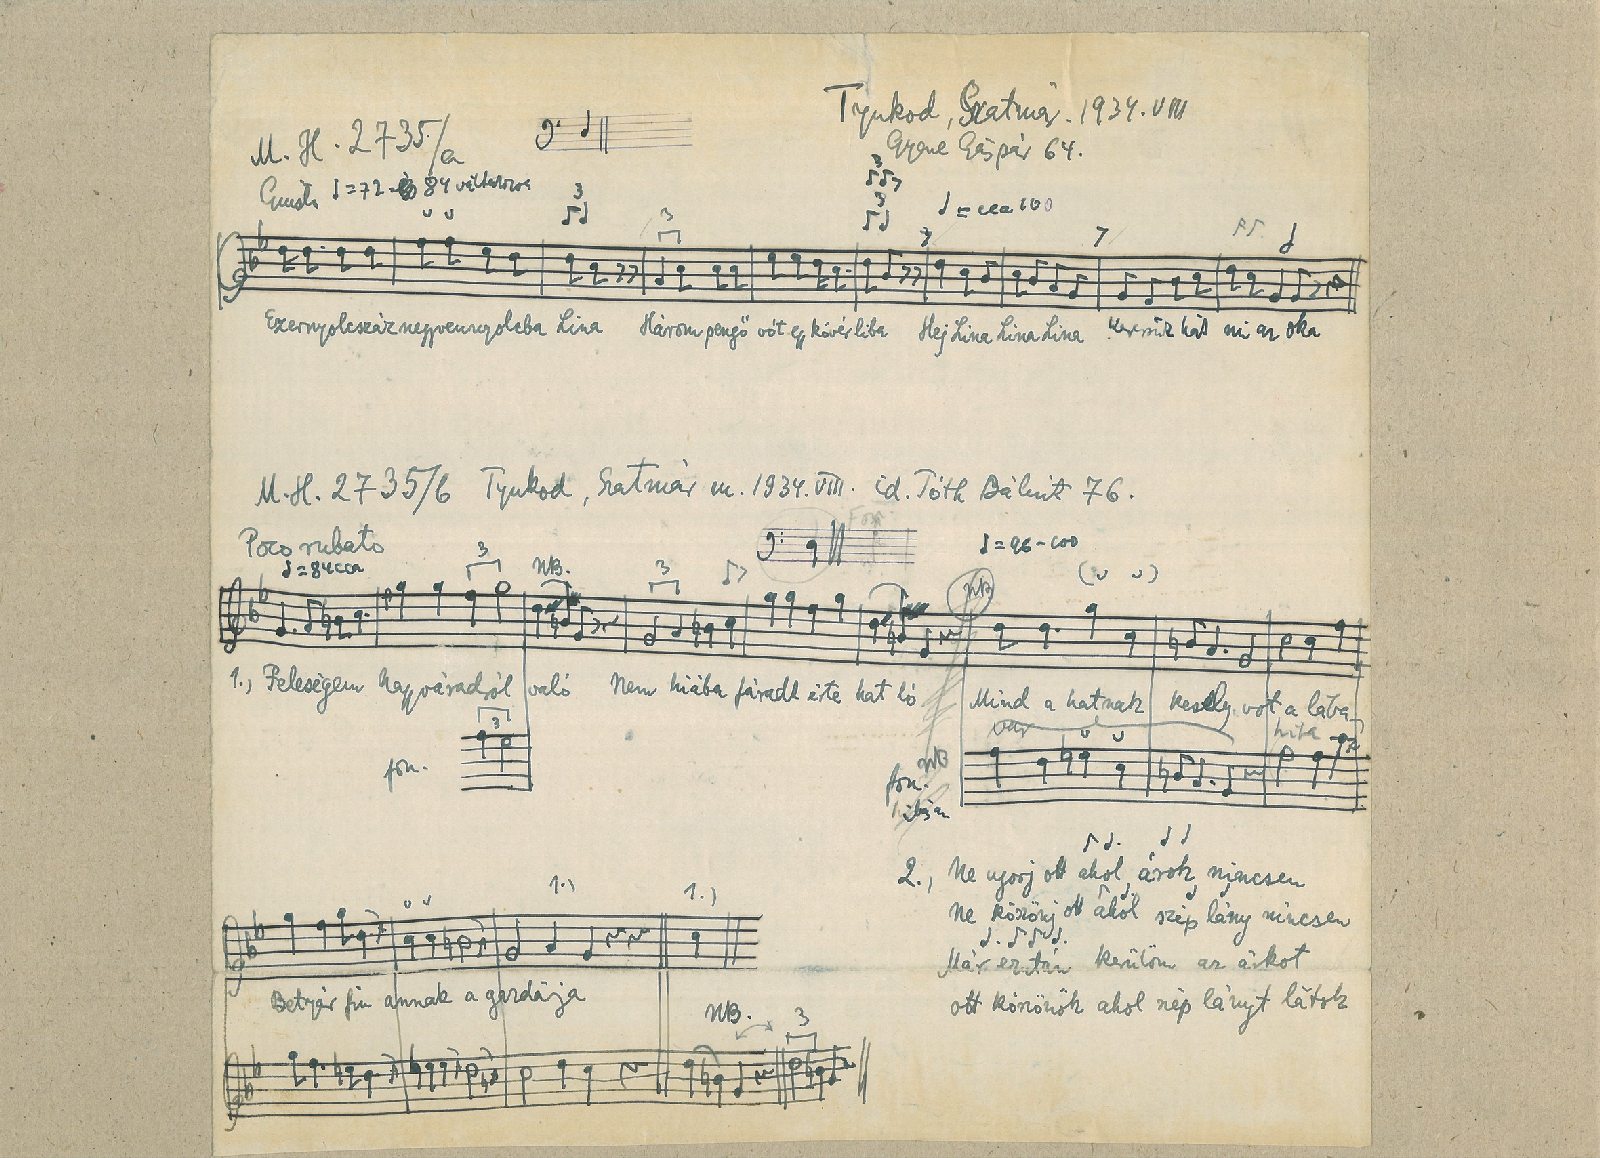 Tyukod, Szatmár. 1934. VIII
M. H. 2735/a
Gáspár 64.
♩=72-84 váltakozva
3
3
3
3
♩ = cca 100
Ezernyolcszáz negyvennyolcba Lina Három pengő vót egy kövér liba Hej Lina Lina Lina hát mi az oka
M.H. 2735/b Tyukod, Szatmár m. 1934. VIII. id. Tóth Bálint 76.
Poco rubato
♩=84 cca
♩=96-100
3
NB.
3
NB
1., Feleségem nagyváradról való Nem hiába fáradt érte hat ló Mind a hatnak kesely vót a lába
3
fon.
NB
fon.
2., Ne ugorj ott ahol árok nincsen
Ne köszönj ott ahol szép lány nincsen
Már ezután kerülöm az árkot
ott köszönök ahol szép lányt látok
1.,
1.,
Betyár fiu annak a gazdája
NB.
3